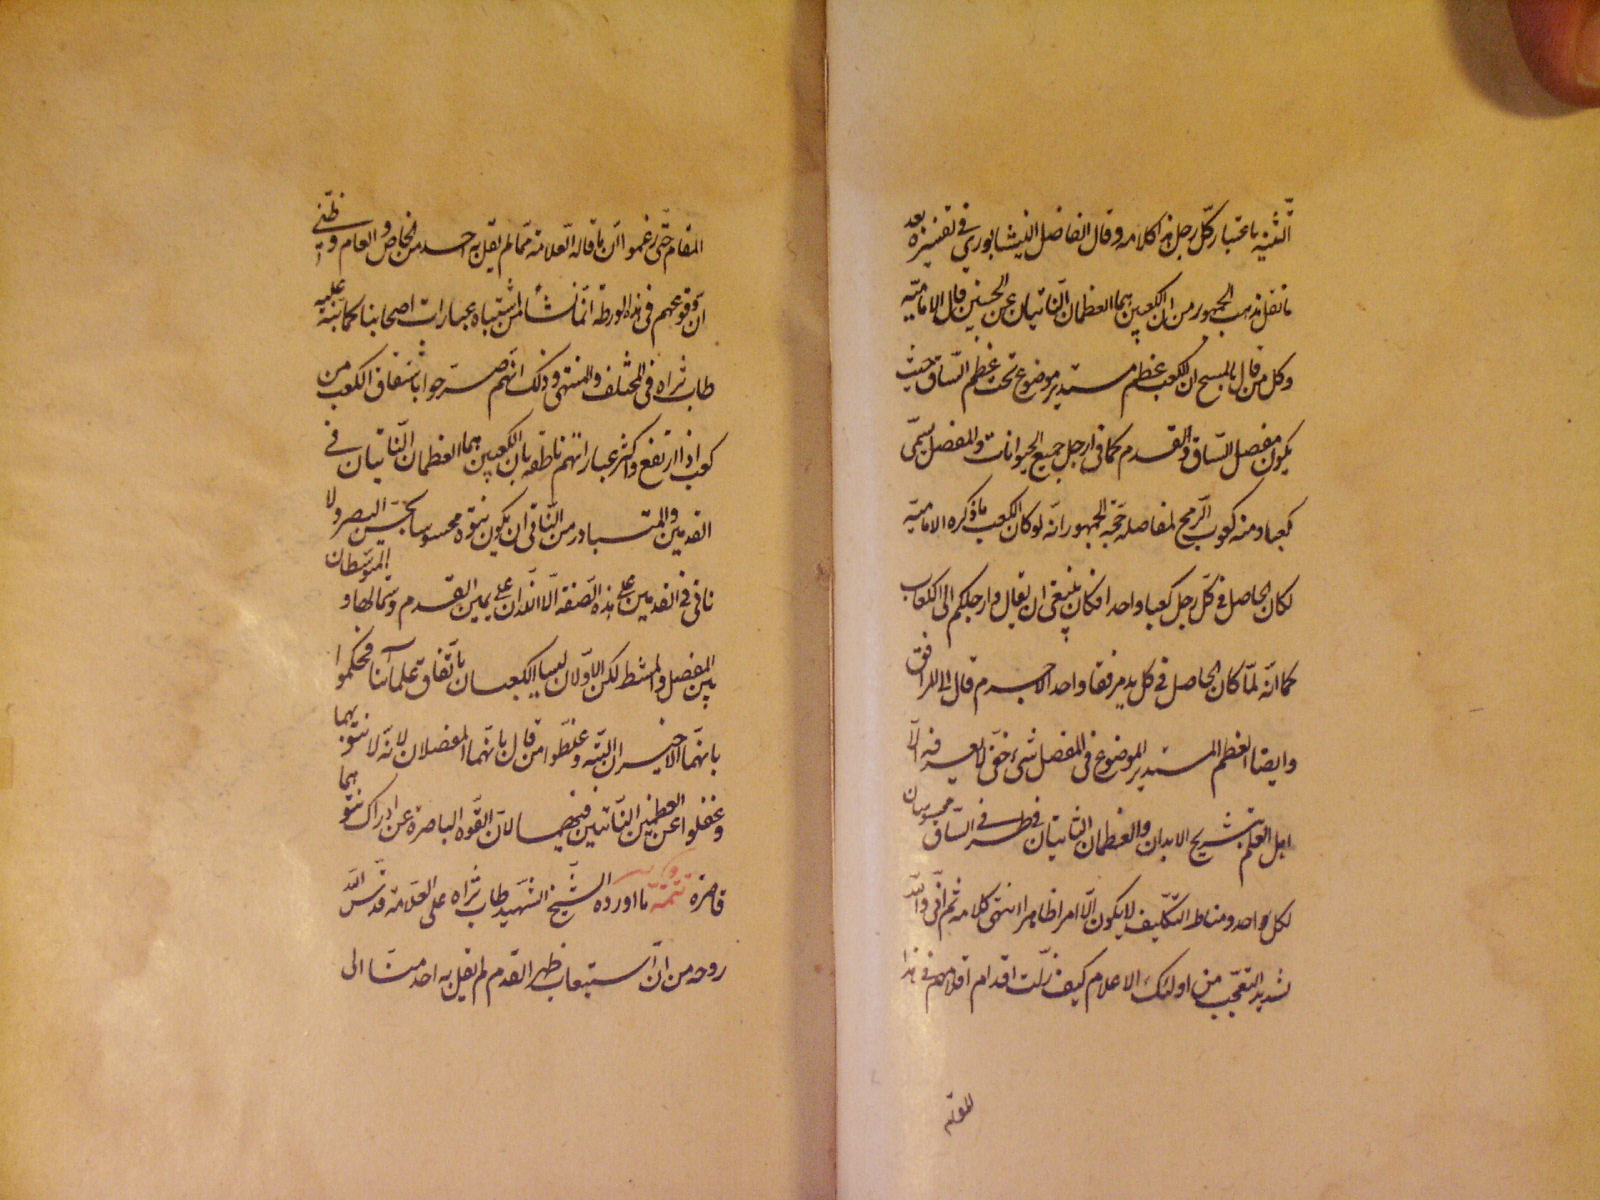 التثنية باعتبار كل رجل هذا كلامه وقال الفاضل النيشابوري في تفسيره بعد
ما نقل مذهب الجمهور من ان الكعبين هما العظمان الناتيان عن الجنبين قال الامامية
وكل من قال بالمسح ان الكعب عظم مستدير موضوع تحت عظم الساق حيث
يكون مفصل الساق والقدم كما في ارجل جميع الحيوانات والمفصل يسمى
كعبا ومنه كعوب الرمح لمفاصله حجة الجمهور انه لو كان الكعب ما ذكره الامامية
لكان الحاصل في كل رجل كعبا واحدا فكان ينبغي ان يقال وارجلكم الى الكعاب
كما انه لما كان الحاصل في كل يد مرفقا واحدا لا جرم قال الى المرافق
وايضا العظم المستدير الموضوع في المفصل شئ خفي لا يعرفه الا
اهل العلم بتشريح الابدان والعظمان الناتيان في طرفي الساق محسوسان
لكل واحد ومناط التكليف لا يكون الا امرا ظاهرا انتهى كلامه ثم اني والله
لشديد التعجب من اولئك الاعلام كيف زلت اقدام اقلامهم في هذا
المقام حتى زعموا ان ما قاله العلامة مما لم يقل به احد من الخاص والعام وظني
ان وقوعهم في هذه الورطة انما نشأ من اشتباه عبارات اصحابنا كما نبه عليه
طاب ثراه في المختلف والمنتهى وذلك انهم صرحوا باشتقاق الكعب من
كعب اذا ارتفع واكثر عباراتهم ناطقة بان الكعبين هما العظمان الناتيان في
القدمين والمتبادر من الناتي ان يكون نتوه محسوسا بحس البصر ولا
ناتي في القدمين على هذه الصفة الا اللذان على يمين القدم وشمالها والمتوسطان
بين المفصل والمشط لكن الاولان ليسا الكعبان باتفاق علمآئنا فحكموا
بانهما الاخيران البتة وغلطوا من قال بانهما المفصلان لانه لا نتو بهما
وغفلوا عن العظمين الناتيين فيهما لان القوة الباصرة عن ادراك نتوهما
قاصرة تتمة ما اورده الشيخ الشهيد طاب ثراه على العلامة قدس الله
روحه من ان استيعاب ظهر القدم لم يقل به احد منا الى